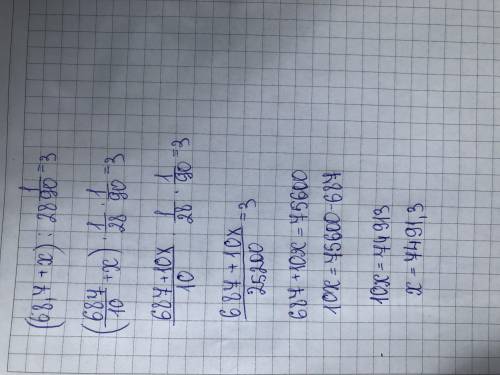 (68,7 + x) : 28 1/90 = 3
(687/10 + x) · 1/28 · 1/90 = 3
687 + 10x/10 · 1/28 · 1/90 = 3
687 + 10x/25200 = 3
687 + 10x = 75600
10x = 75600 - 687
10x = 74913
x = 7491,3